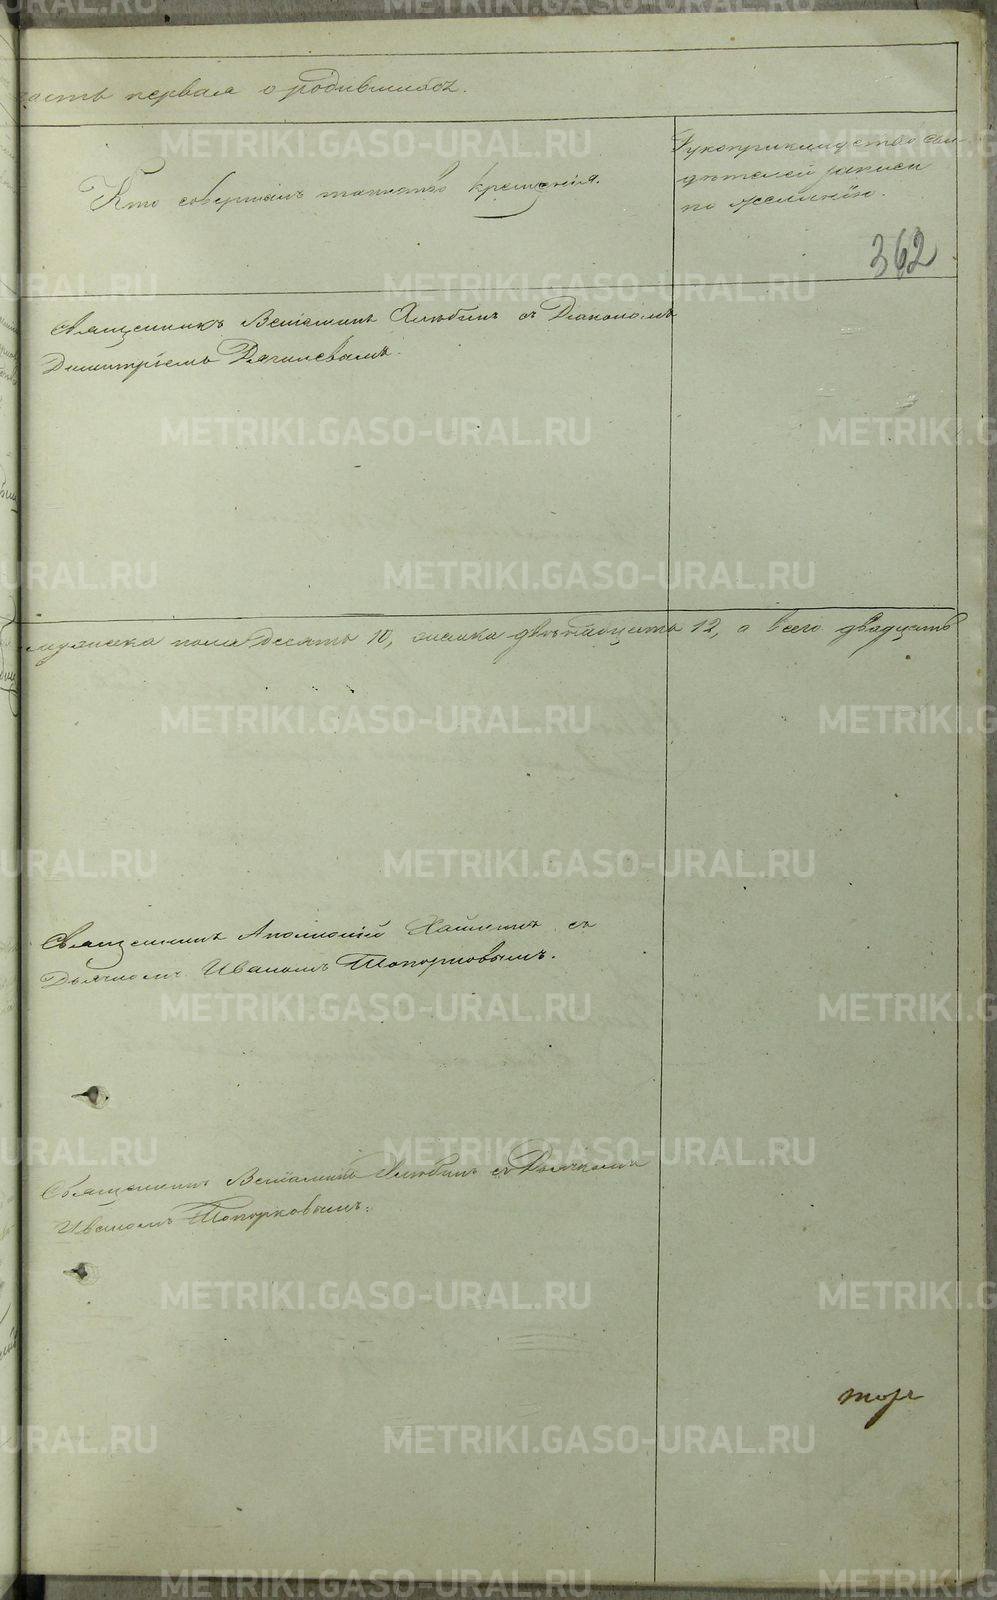 часть первая о родившихся.
Кто совершалъ таинство крещенія.
Рукоприкладство сви-
дѣтелей записи
по желанію.
362
Священникъ Веніаминъ Хлюбинъ съ Діакономъ
Димитріемъ Дягилевымъ.
мужеска пола десять 10, женска двѣнадцать 12, а всего двадцать
Священникъ Аполлоній съ
Дьячкомъ Иваномъ Топорковымъ.
Священникъ Веніаминъ Хлюбинъ съ Дьячкомъ
Иваномъ Топорковымъ.
METRIKI.GASO-URAL.RU